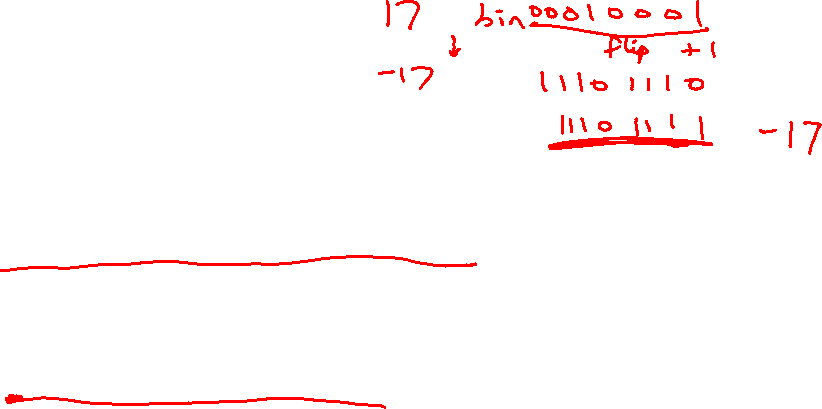 17 bin 00010001
↓ flip +1
-17 1110 1110
1110 1111 -17